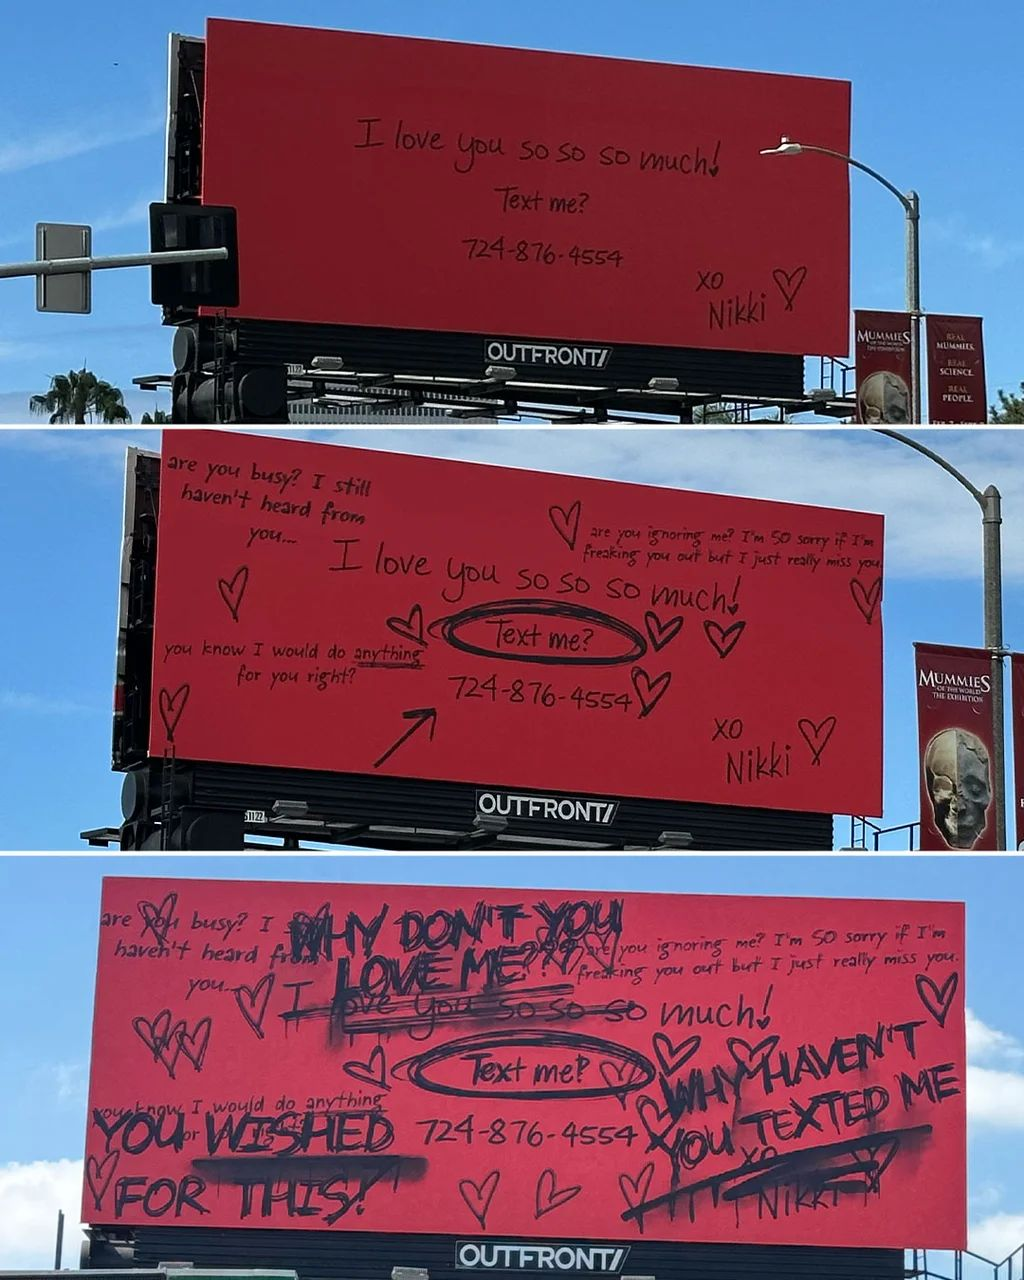 I love you so so so much!
Text me?
724-876-4554
xo
Nikki
OUTFRONT/
1122
MUMMIES
OF THE WORLD
THE EXHIBITION
REAL
MUMMIES.
REAL
SCIENCE.
REAL
PEOPLE.
are you busy? I still
haven't heard from
you...
are you ignoring me? I'm SO sorry if I'm
freaking you out but I just really miss you.
I love you so so so much!
Text me?
you know I would do anything
for you right?
724-876-4554
xo
Nikki
OUTFRONT/
1122
MUMMIES
OF THE WORLD
THE EXHIBITION
are you busy? I
haven't heard
you...
WHY DON'T YOU
LOVE ME???
are you ignoring me? I'm SO sorry if I'm
freaking you out but I just really miss you.
I love you so so so much!
Text me?
WHY HAVEN'T
YOU TEXTED ME
you know I would do anything
YOU WISHED
FOR THIS!
724-876-4554
xo
Nikki
OUTFRONT/